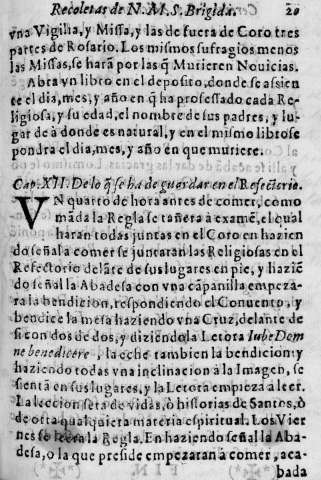 Recoletas de N. M. S. Brigida. 20
vna Vigilia, y Missa, y las de fuera de Coro tres
partes de Rosario. Los mismos sufragios menos
las Missas, se harã por las q̃ Murieren Nouicias.
Abra vn libro en el deposito, donde se assien
te el dia, mes, y año en q̃ ha professado cada Re-
ligiosa, y su edad, el nombre de sus padres, y lu-
gar de à donde es natural, y en el mismo libro se
pondra el dia, mes, y año en que muriere.
Cap. XII. De lo q̃ se ha de guardar en el Refectorio.
VN quarto de hora antes de comer, como
mãda la Regla se tañera à examẽ, el qual
haran todas juntas en el Coro en hazien
do señal a comer se juntaran las Religiosas en el
Refectorio delãte de sus lugares en pie, y haziẽ
do señal la Abadesa con vna cãpanilla empeza-
ra la bendicion, respondiendo el Conuento, y
bendice la mesa haziendo vna Cruz, delante de
si con dos dedos, y diziẽdo la Letora Iube Dom
ne benedicere, la eche tambien la bendicion: y
haziendo todas vna inclinacion à la Imagen, se
sientã en sus lugares, y la Letora empieza a leer.
La leccion sera de vidas, ò historias de Santos, ò
de otra qualquiera materia espiritual. Los Vier
nes se leera la Regla. En haziendo señal la Aba-
desa, o la que preside empezaran à comer, aca-
bada